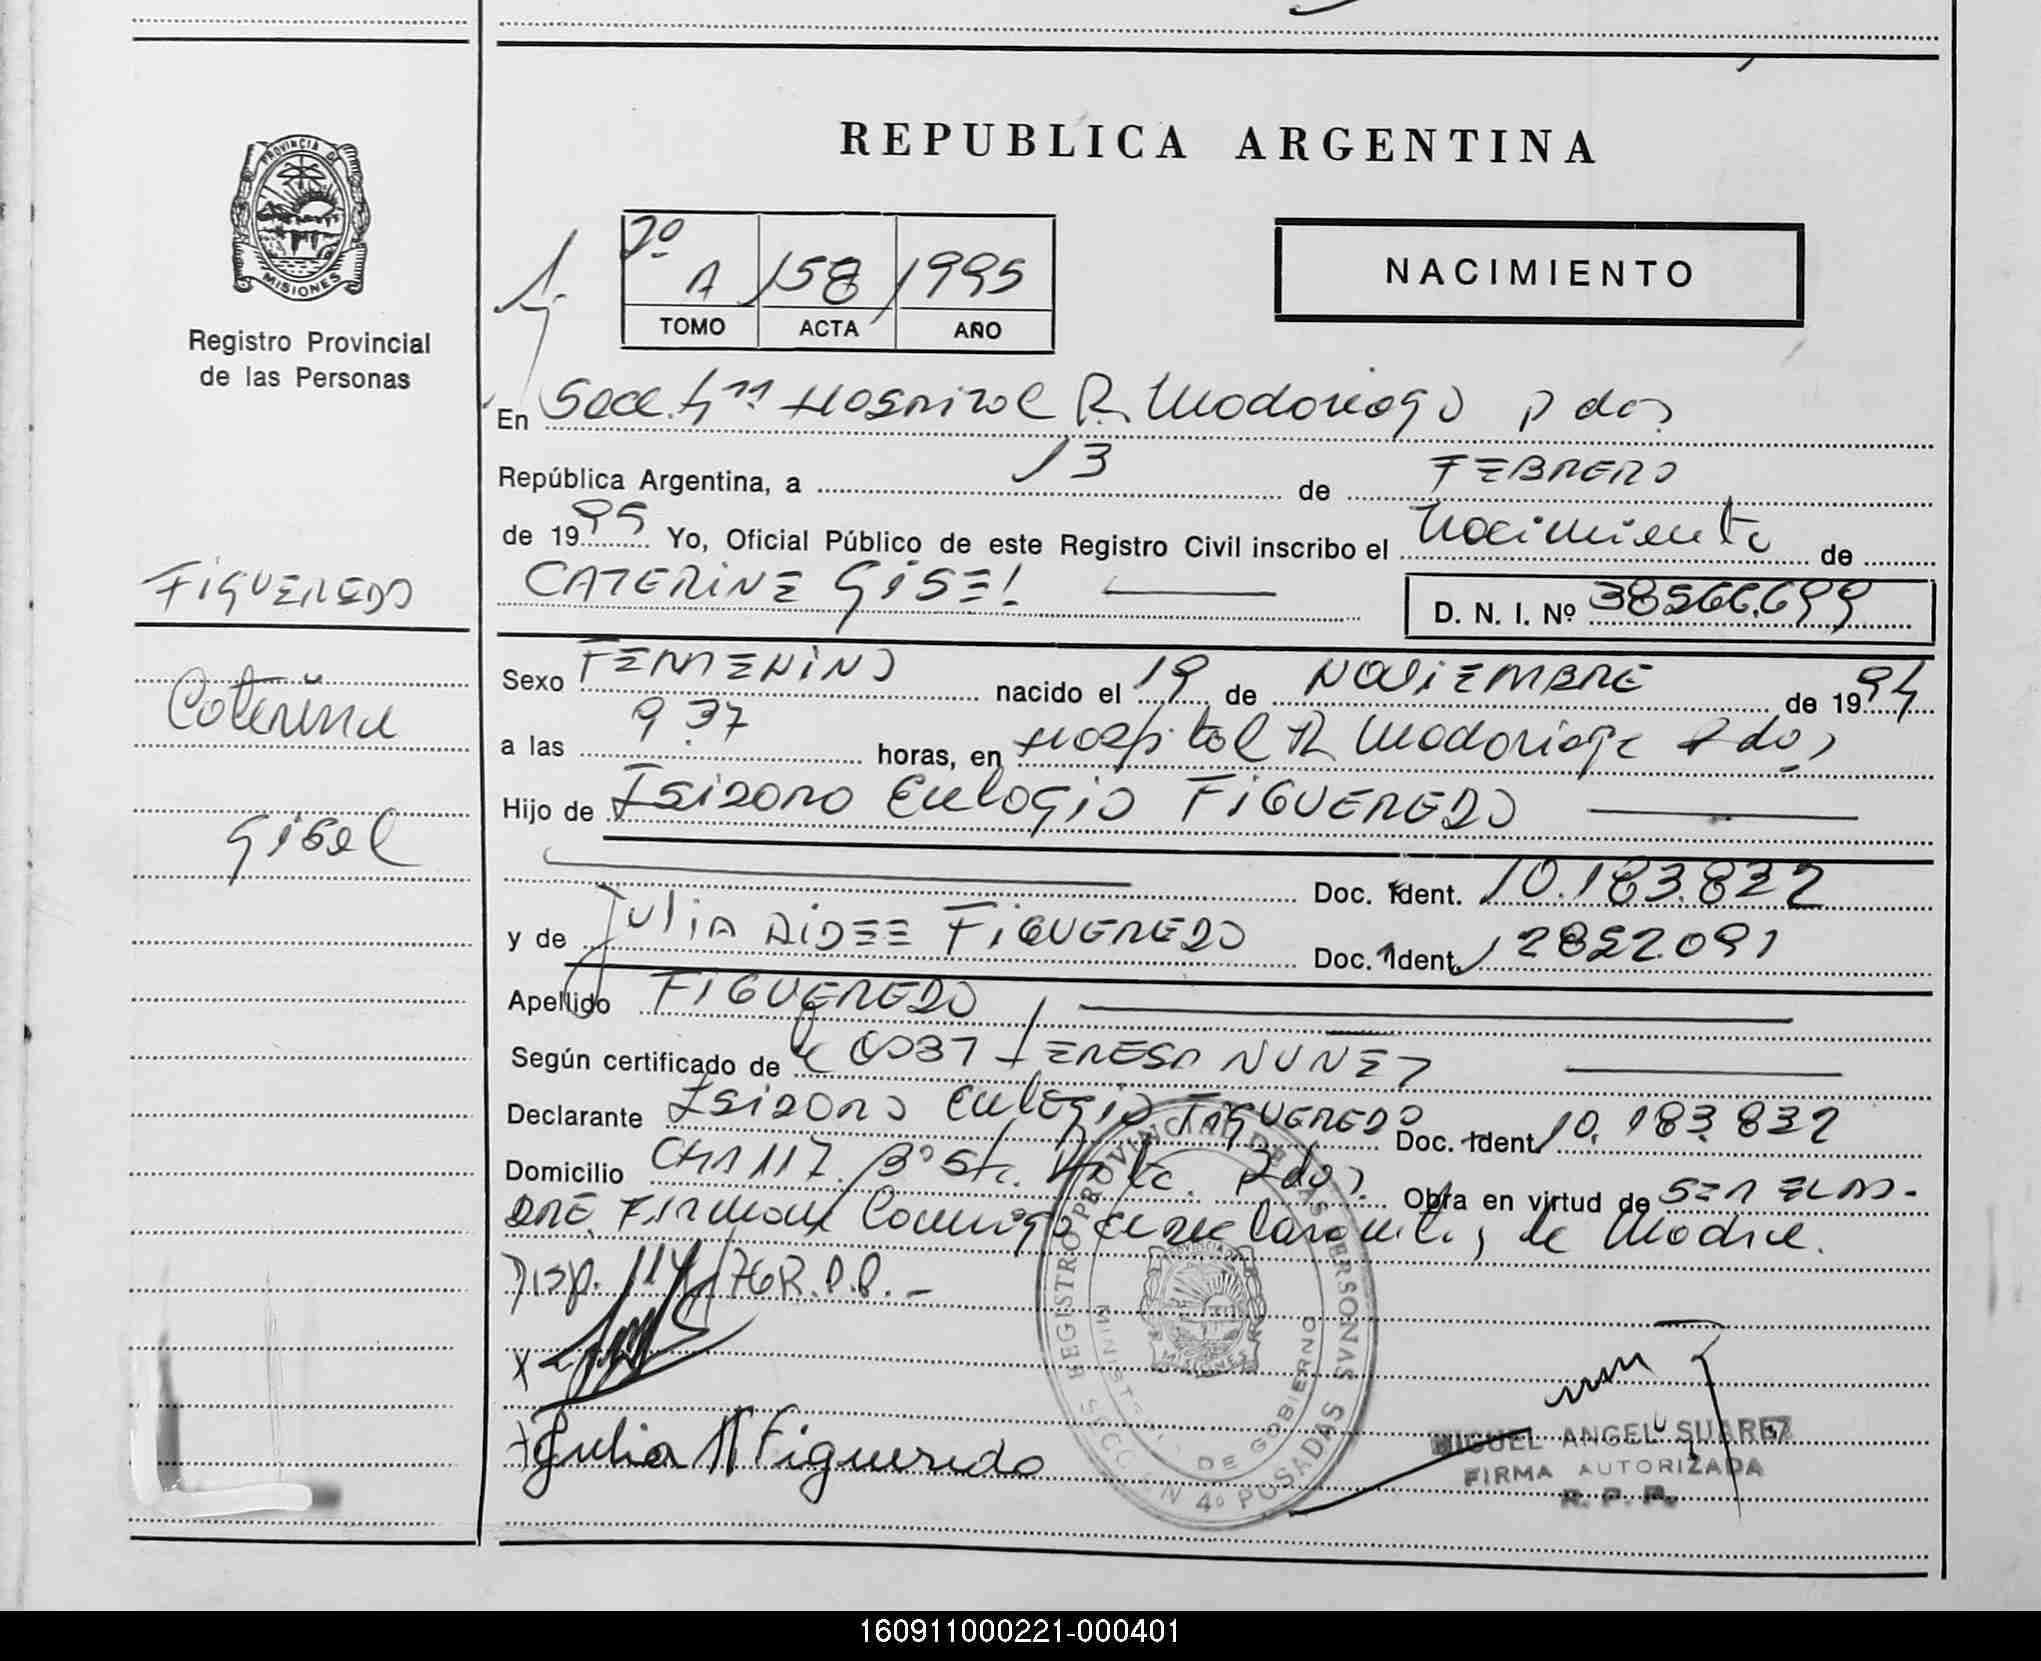 REPUBLICA ARGENTINA
PROVINCIA DE
MISIONES
Registro Provincial
de las Personas
2º
A 158 1995
TOMO ACTA AÑO
NACIMIENTO
En Secc. 4ta Hospital R. Madariaga Pdas
República Argentina, a 13 de FEBRERO
de 1995 Yo, Oficial Público de este Registro Civil inscribo el Nacimiento de
CATERINE GISEL
D. N. I. Nº 38566.699
FIGUEREDO
Caterine
Gisel
Sexo FEMENINO nacido el 19 de NOVIEMBRE de 1994
a las 9 37 horas, en Hospital R Madariaga Pdas
Hijo de Isidoro Eulogio FIGUEREDO
Doc. Ident. 10.183.832
y de Julia AIDEE FIGUEREDO Doc. Ident. 12852.091
Apellido FIGUEREDO
Según certificado de TERESA NUÑEZ
Declarante Isidoro Eulogio FIGUEREDO Doc. Ident. 10.183.832
Domicilio CHA 117 Bº Sta. Pdas. Obra en virtud de SER EL PA-
DRE. Firman Conmigo el declarante y la Madre.
Disp. 114/76 R.P.P.-
X
Julia A Figueredo
REGISTRO PROVINCIAL DE LAS PERSONAS
MINISTERIO DE GOBIERNO
PROVINCIA DE
MISIONES
SECCION 4º POSADAS
MIGUEL ANGEL SUAREZ
FIRMA AUTORIZADA
R. P. P.
160911000221-000401